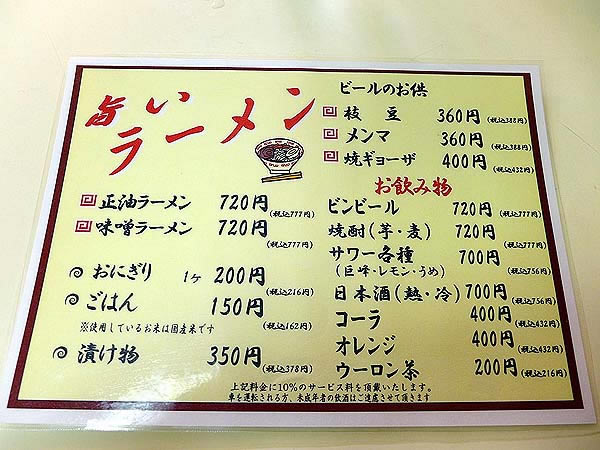 旨い
ラーメン
正油ラーメン 720円(税込777円)
味噌ラーメン 720円(税込777円)
おにぎり 1ヶ 200円(税込216円)
ごはん 150円(税込162円)
※使用しているお米は国産米です
漬け物 350円(税込378円)
ビールのお供
枝豆 360円(税込388円)
メンマ 360円(税込388円)
焼ギョーザ 400円(税込432円)
お飲み物
ビンビール 720円(税込777円)
焼酎(芋・麦) 720円(税込777円)
サワー各種 700円(税込756円)
(巨峰・レモン・うめ)
日本酒(熱・冷) 700円(税込756円)
コーラ 400円(税込432円)
オレンジ 400円(税込432円)
ウーロン茶 200円(税込216円)
上記料金に10%のサービス料を頂戴いたします。
車を運転される方、未成年者の飲酒はご遠慮させて頂きます